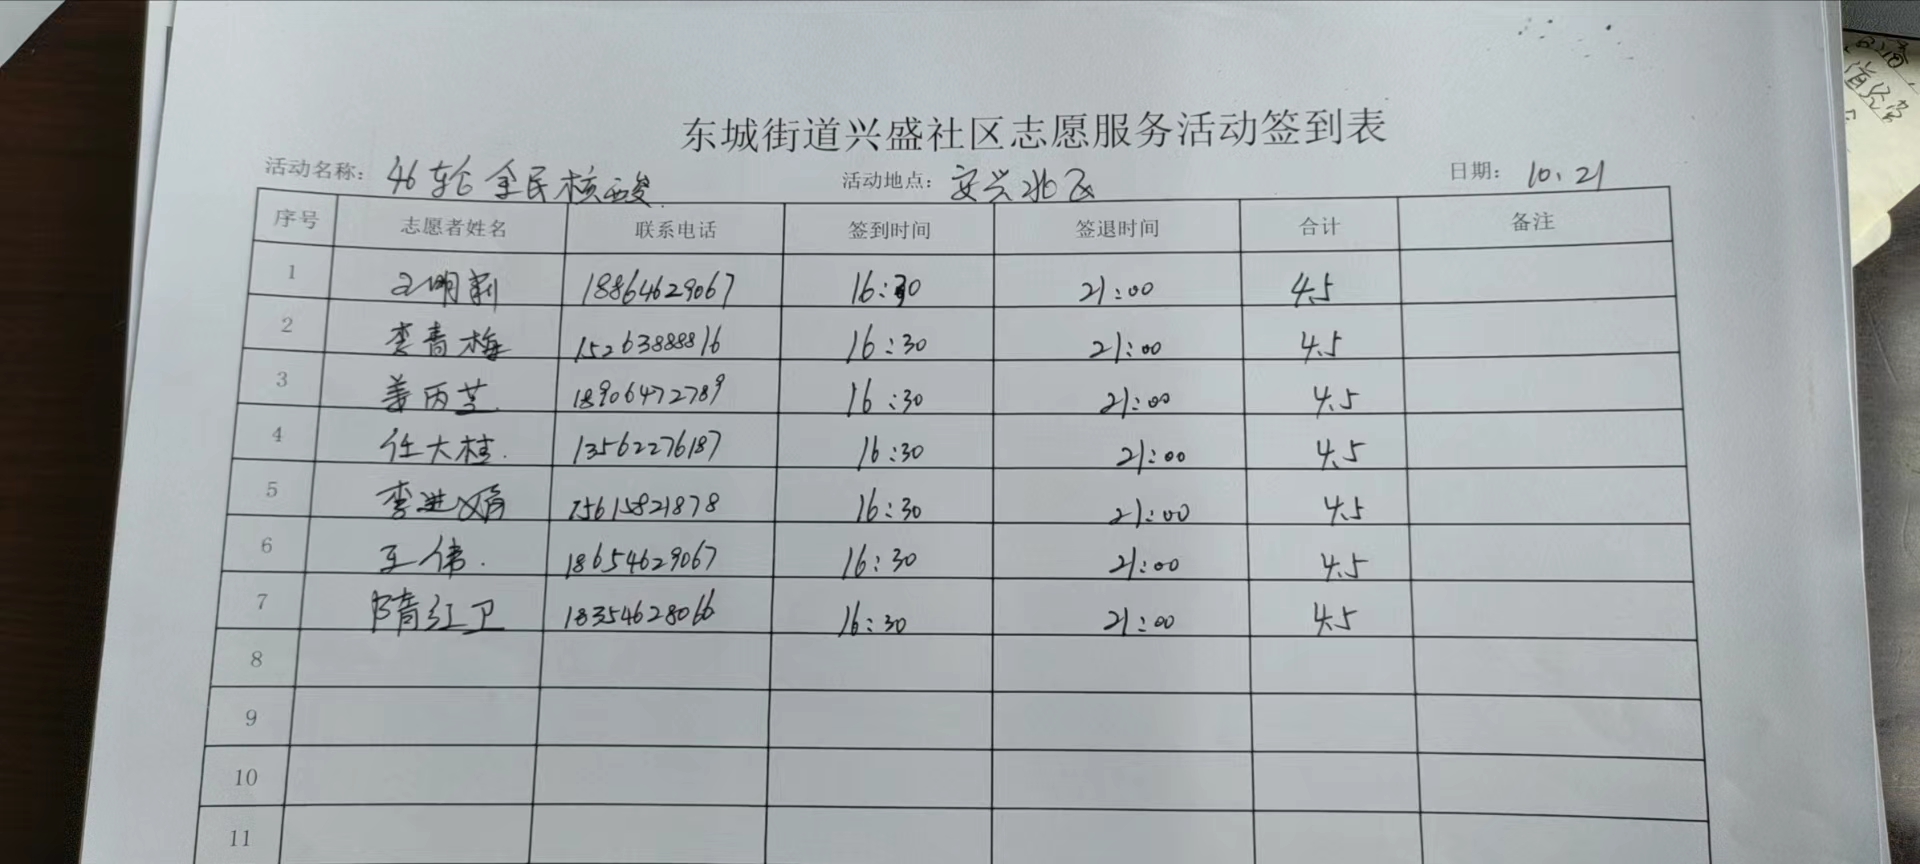 东城街道兴盛社区志愿服务活动签到表
活动名称: 46轮全民核酸 活动地点: 安兴北区 日期: 10.21
序号 志愿者姓名 联系电话 签到时间 签退时间 合计 备注
1 王明莉 18864629067 16:30 21:00 4.5
2 李青梅 15263888816 16:30 21:00 4.5
3 姜丙芝 18906472789 16:30 21:00 4.5
4 任大桂 13562276187 16:30 21:00 4.5
5 李进娟 15615821878 16:30 21:00 4.5
6 王伟 18654629067 16:30 21:00 4.5
7 隋红卫 18354628066 16:30 21:00 4.5
8
9
10
11